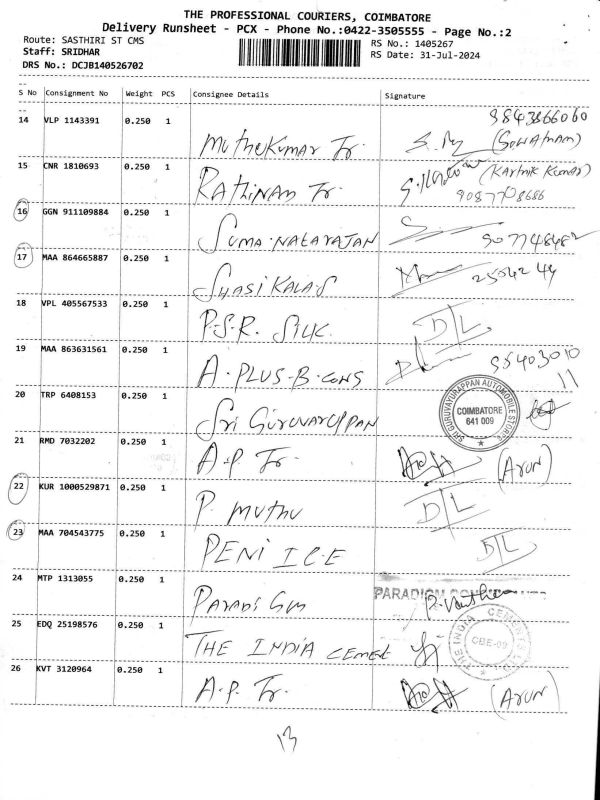 THE PROFESSIONAL COURIERS, COIMBATORE
Delivery Runsheet - PCX - Phone No.:0422-3505555 - Page No.:2
Route: SASTHIRI ST CMS
RS No.: 1405267
Staff: SRIDHAR
RS Date: 31-Jul-2024
DRS No.: DCJB140526702
S No Consignment No Weight PCS Consignee Details Signature
14 VLP 1143391 0.250 1 Muthukumar Tr.
15 CNR 1810693 0.250 1 RATHINAM Tr. (Kartnik Kumar)
16 GGN 911109884 0.250 1 SUMA.NATARAJAN
17 MAA 864665887 0.250 1 SHASIKALA.S
18 VPL 405567533 0.250 1 P.S.R. SILK. D/L
19 MAA 863631561 0.250 1 A.PLUS-B-CONS
20 TRP 6408153 0.250 1 Sri GURUVAYUPPAN
SRI GURUVAYURAPPAN AUTOMOBILE STORES
COIMBATORE
641 009
21 RMD 7032202 0.250 1 A.P. Tr. (Arun)
22 KUR 1000529871 0.250 1 P. muthu D/L
23 MAA 704543775 0.250 1 PENI ICE D/L
24 MTP 1313055 0.250 1 Paradigm
PARADIGM
25 EDQ 25198576 0.250 1 THE INDIA cement
THE INDIA CEMENTS
CBE-09
26 KVT 3120964 0.250 1 A.P. Tr. (Arun)
13